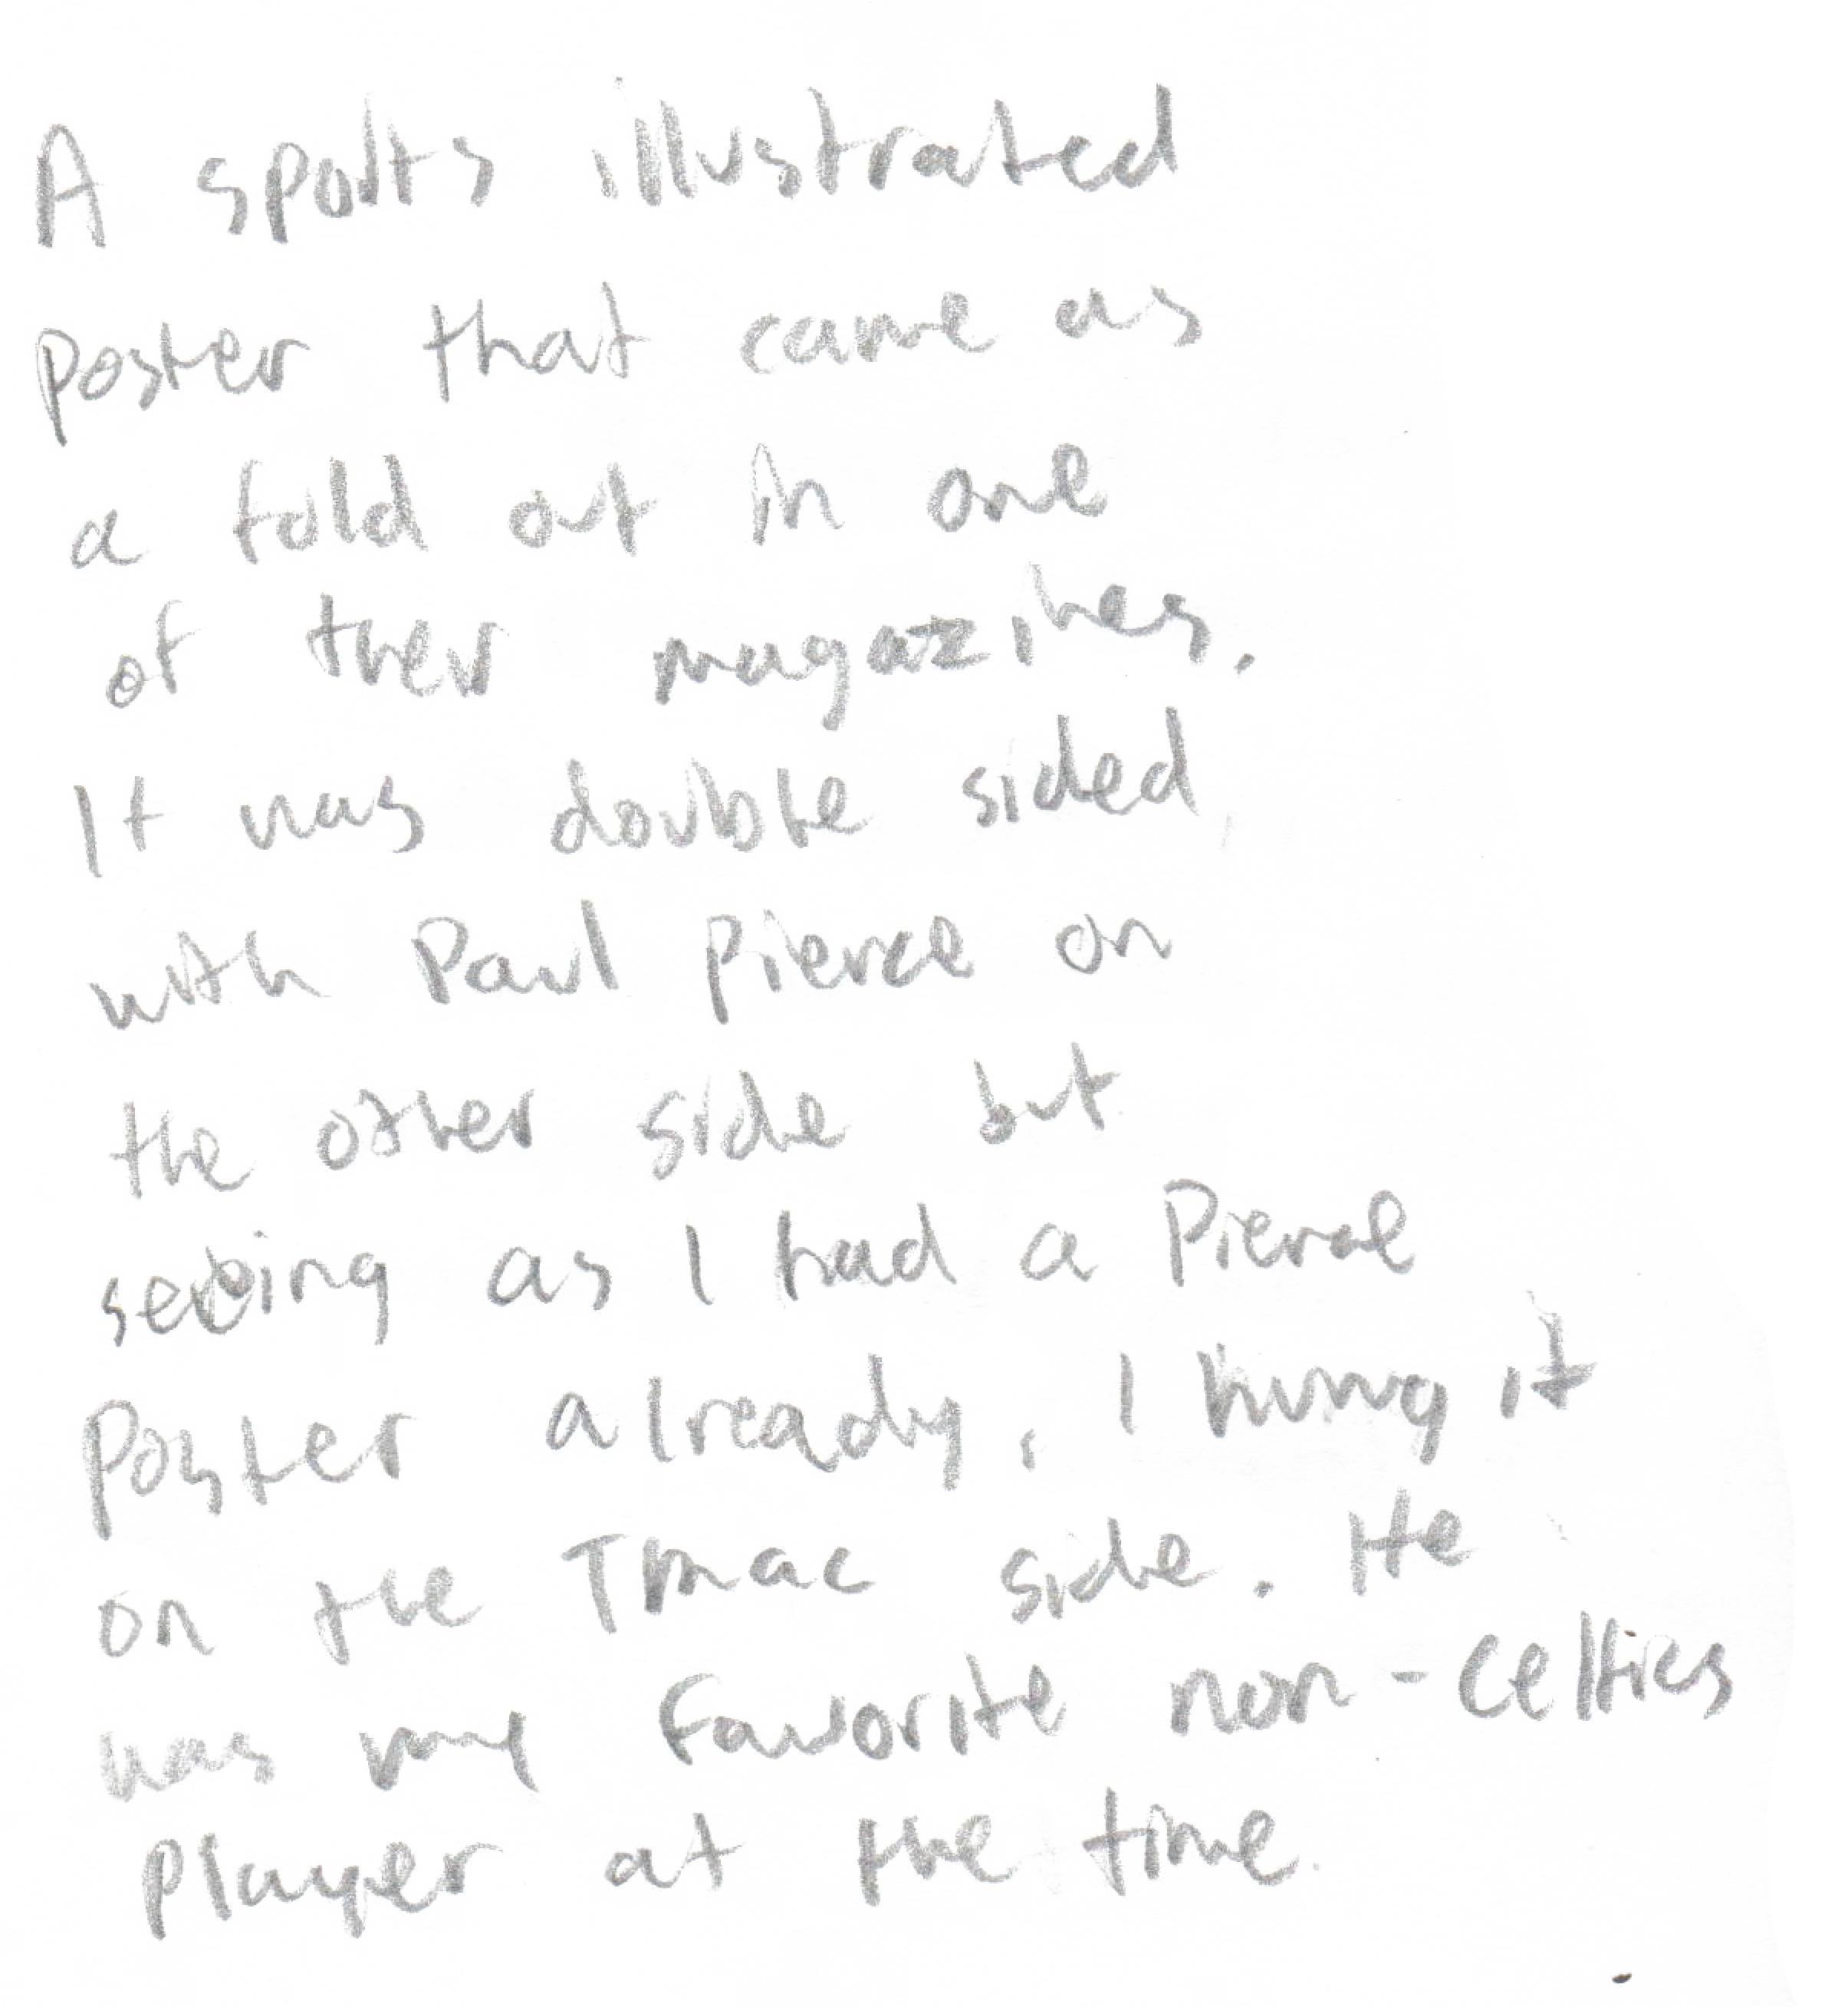 A sports illustrated
poster that came as
a fold out in one
of their magazines.
It was double sided,
with Paul Pierce on
the other side but
seeing as I had a Pierce
Poster already, I hung it
on the Tmac side. He
was my favorite non-celtics
player at the time.